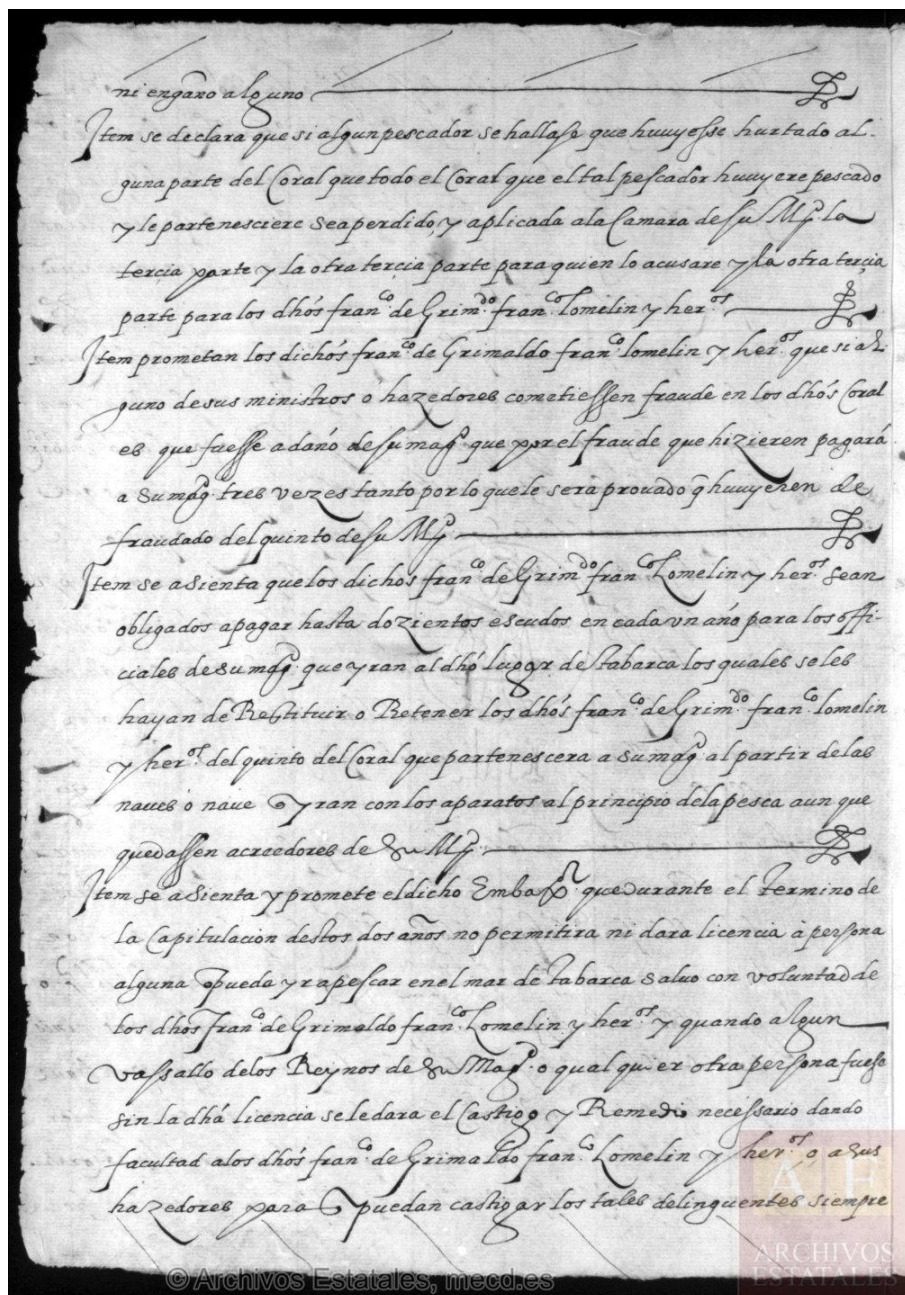 ni engaño alguno
Item se declara que si algun pescador se hallase que huuyesse hurtado al-
guna parte del Coral que todo el Coral que el tal pescador huuyere pescado
y le partenesciere sea perdido, y aplicada a la Camara de su Mg.d la
tercia parte y la otra tercia parte para quien lo acusare y la otra tercia
parte para los dhós fran.co de Grim.do fran.co lomelin y her.os
Item prometan los dichós fran.co de Grimaldo fran.co lomelin y her.os que si al
guno de sus ministros o hazedores cometiessen fraude en los dhós Coral
es que fuesse a daño de su mag.d que por el fraude que hizieren pagará
a su mag.d tres vezes tanto por lo que le sera prouado q̃ huuyeren de
fraudado del quinto de su Mg.d
Item se asienta que los dichós fran.co de Grim.do fran.co Lomelin y her.os sean
obligados a pagar hasta dozientos escudos en cada vn año para los offi-
ciales de su mag.d que yran al dhó lugar de tabarca los quales se les
hayan de Restituir o Retener los dhós fran.co de Grim.do fran.co lomelin
y her.os del quinto del Coral que partenescera a su mag.d al partir de las
naues o naue q̃ yran con los aparatos al principio de la pesca aun que
quedassen acreedores de Su Mg.d
Item se asienta y promete el dicho Embax.r que durante el termino de
la Capitulacion destos dos años no permitira ni dara licencia à persona
alguna q̃ pueda yr a pescar en el mar de tabarca saluo con voluntad de
los dhós Fran.co de Grimaldo fran.co Lomelin y her.os y quando algun
vassallo de los Reynos de Su Mag.d o qualquier otra persona fuese
sin la dhá licencia se le dara el Castigo y Remedio necessario dando
facultad a los dhós fran.co de Grimaldo fran.co Lomelin y her.os o, a sus
hazedores para q̃ puedan castigar los tales delinquentes siempre
© Archivos Estatales, mecd.es
AF
ARCHIVOS
ESTATALES